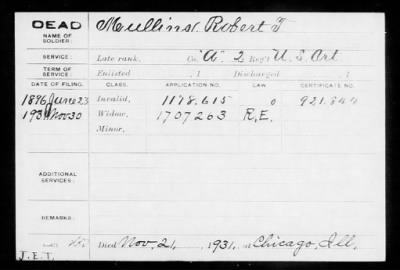 DEAD
NAME OF SOLDIER:
Mullins, Robert T
SERVICE:
Late rank, Co. "A" 2 Reg't U.S. Art
TERM OF SERVICE:
Enlisted , 1 Discharged , 1
DATE OF FILING. CLASS. APPLICATION NO. LAW CERTIFICATE NO.
1896 June 23 Invalid, 1178.615 921.844
1931 Nov 30 Widow, 1707263 R.E.
Minor,
ADDITIONAL SERVICES:
REMARKS:
Died Nov. 21, 1931, at Chicago, Ill.
J.E.T.